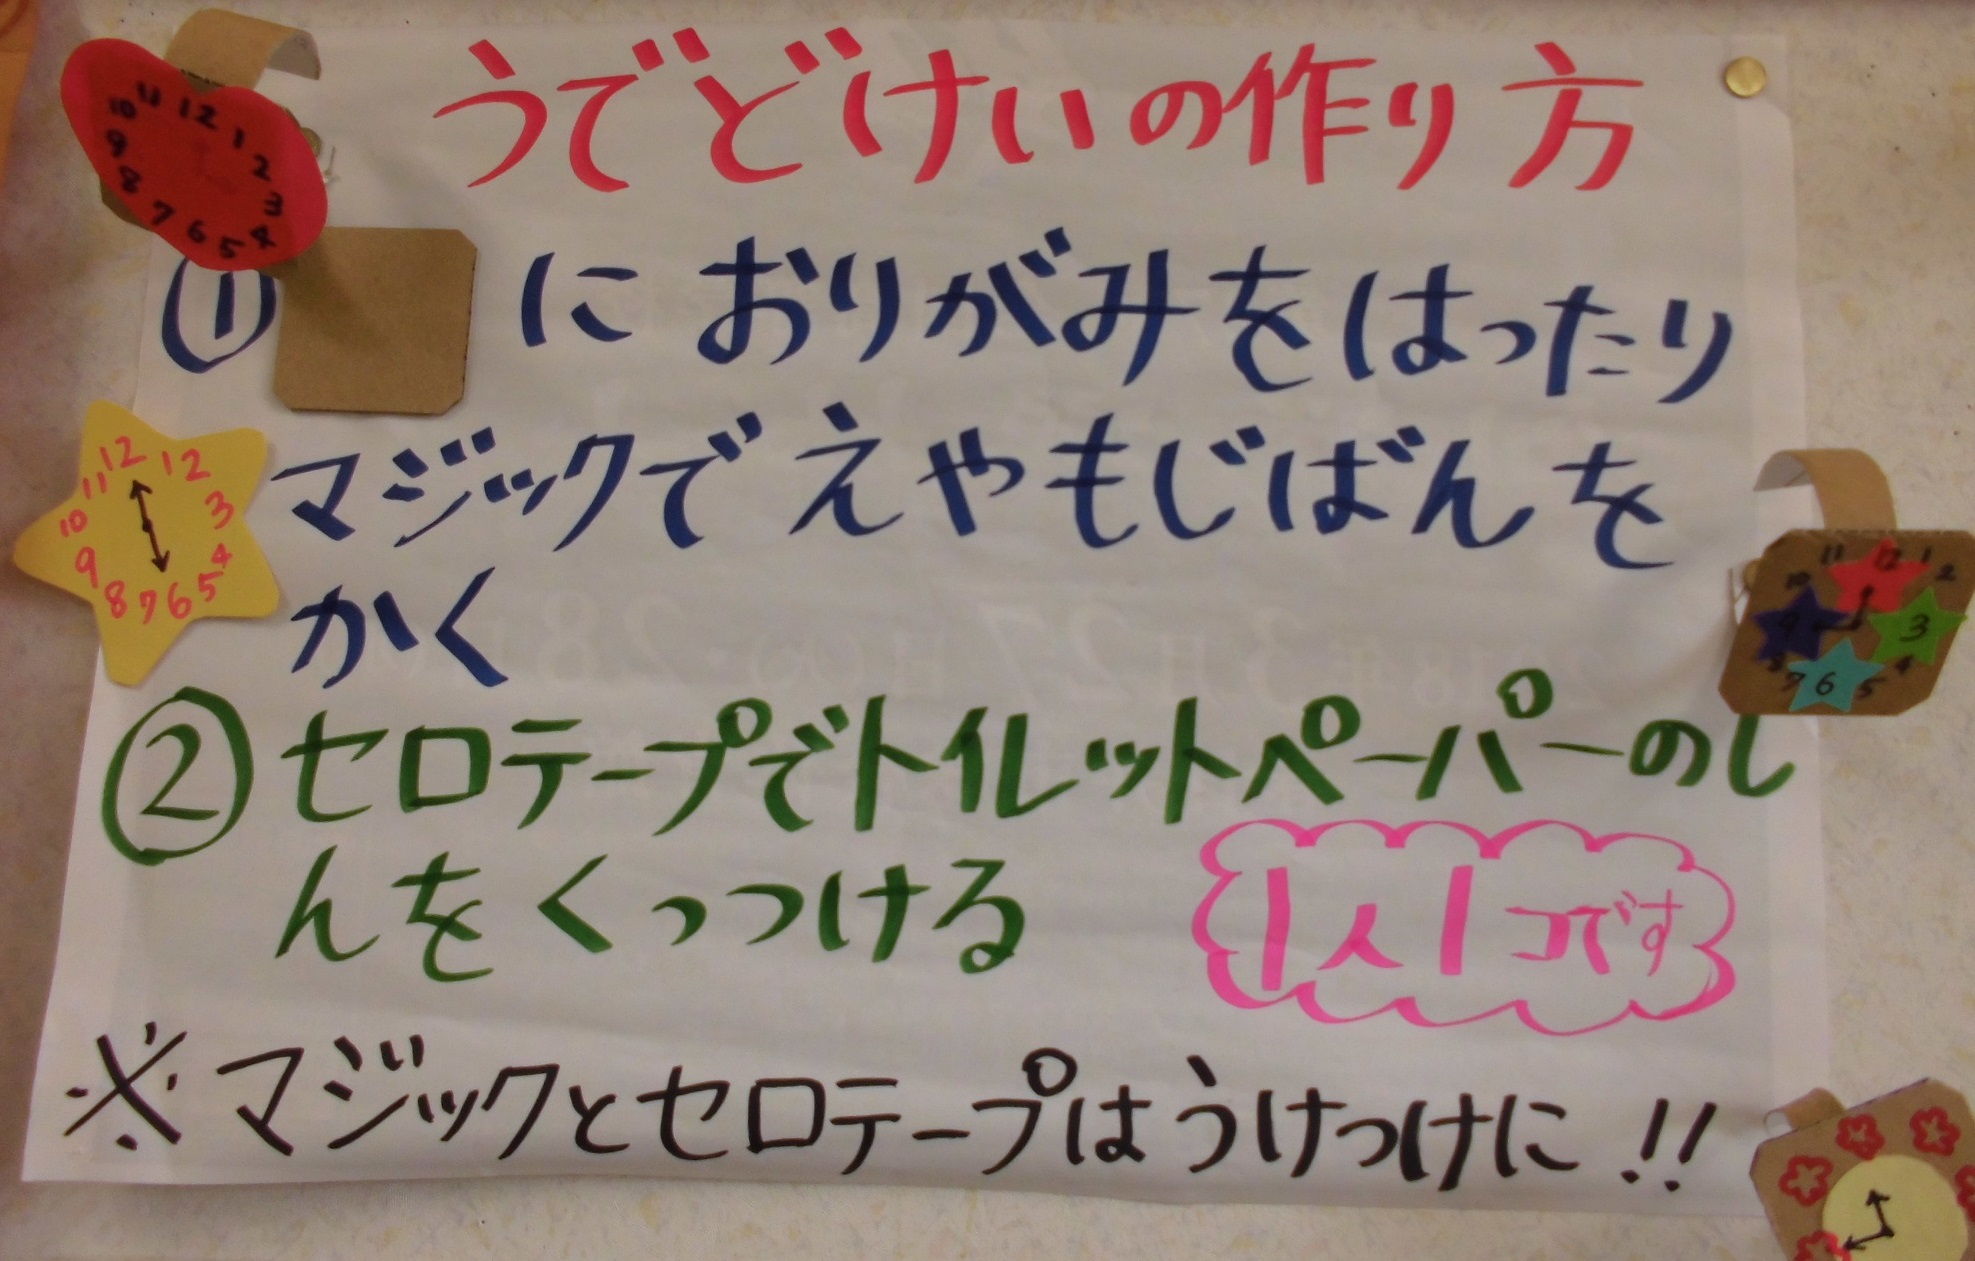 うでどけいの作り方
① に おりがみをはったり
マジックで えやもじばんを
かく
② セロテープでトイレットペーパーのし
んをくっつける
1人1コです
※マジックとセロテープはうけつけに!!
11 12 1
10 2
9 3
8 4
7 6 5
12 1 2
11 3
10 4
9 5
8 7 6
11 12 1
10 2
9 3
8 4
7 6 5